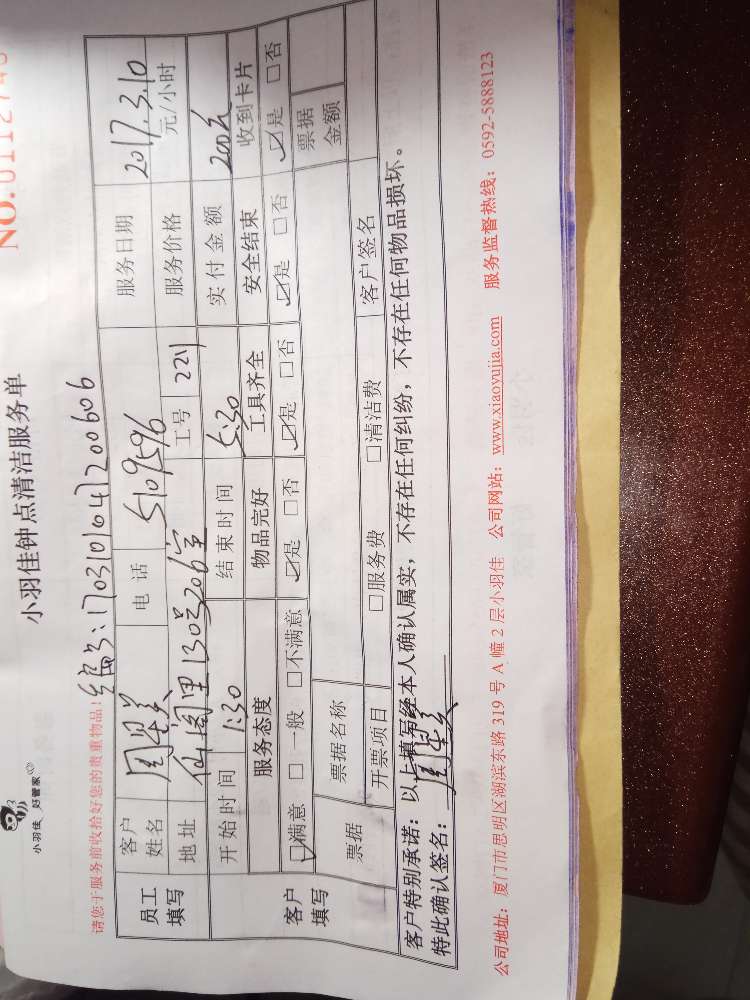 小羽佳 好管家
NO.0112740
小羽佳钟点清洁服务单
请您于服务前收拾好您的贵重物品!
编号:170310104200606
员工填写
客户姓名 电话 5109596 服务日期 2017.3.10
地址 仙阁里130号206室 工号 221 服务价格 元/小时
开始时间 1:30 结束时间 5:30 实付金额 200元
客户填写
服务态度 物品完好 工具齐全 安全结束 收到卡片
☑满意 □一般 □不满意 ☑是 □否 ☑是 □否 ☑是 □否 ☑是 □否
票据 票据名称 票据金额
开票项目 □服务费 □清洁费 客户签名
客户特别承诺:以上填写经本人确认属实,不存在任何纠纷,不存在任何物品损坏。
特此确认签名:
公司地址:厦门市思明区湖滨东路 319 号 A 幢 2 层小羽佳 公司网站:www.xiaoyujia.com 服务监督热线:0592-5888123